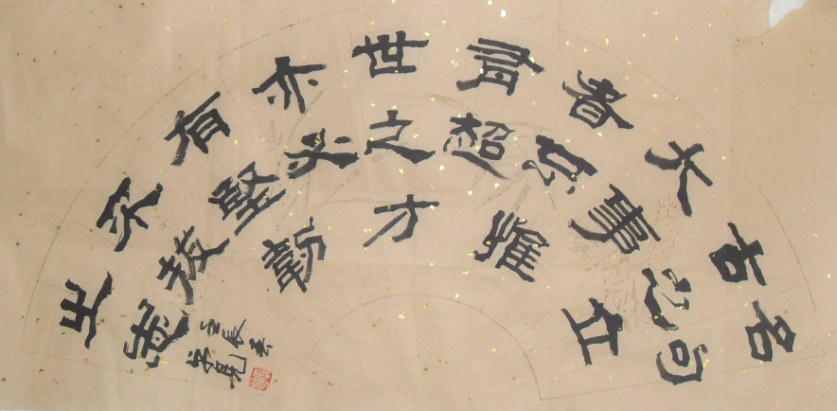 名句
古之立
大事
者不惟
有超
世之才
亦必
有堅韌
不拔
之志
壬辰